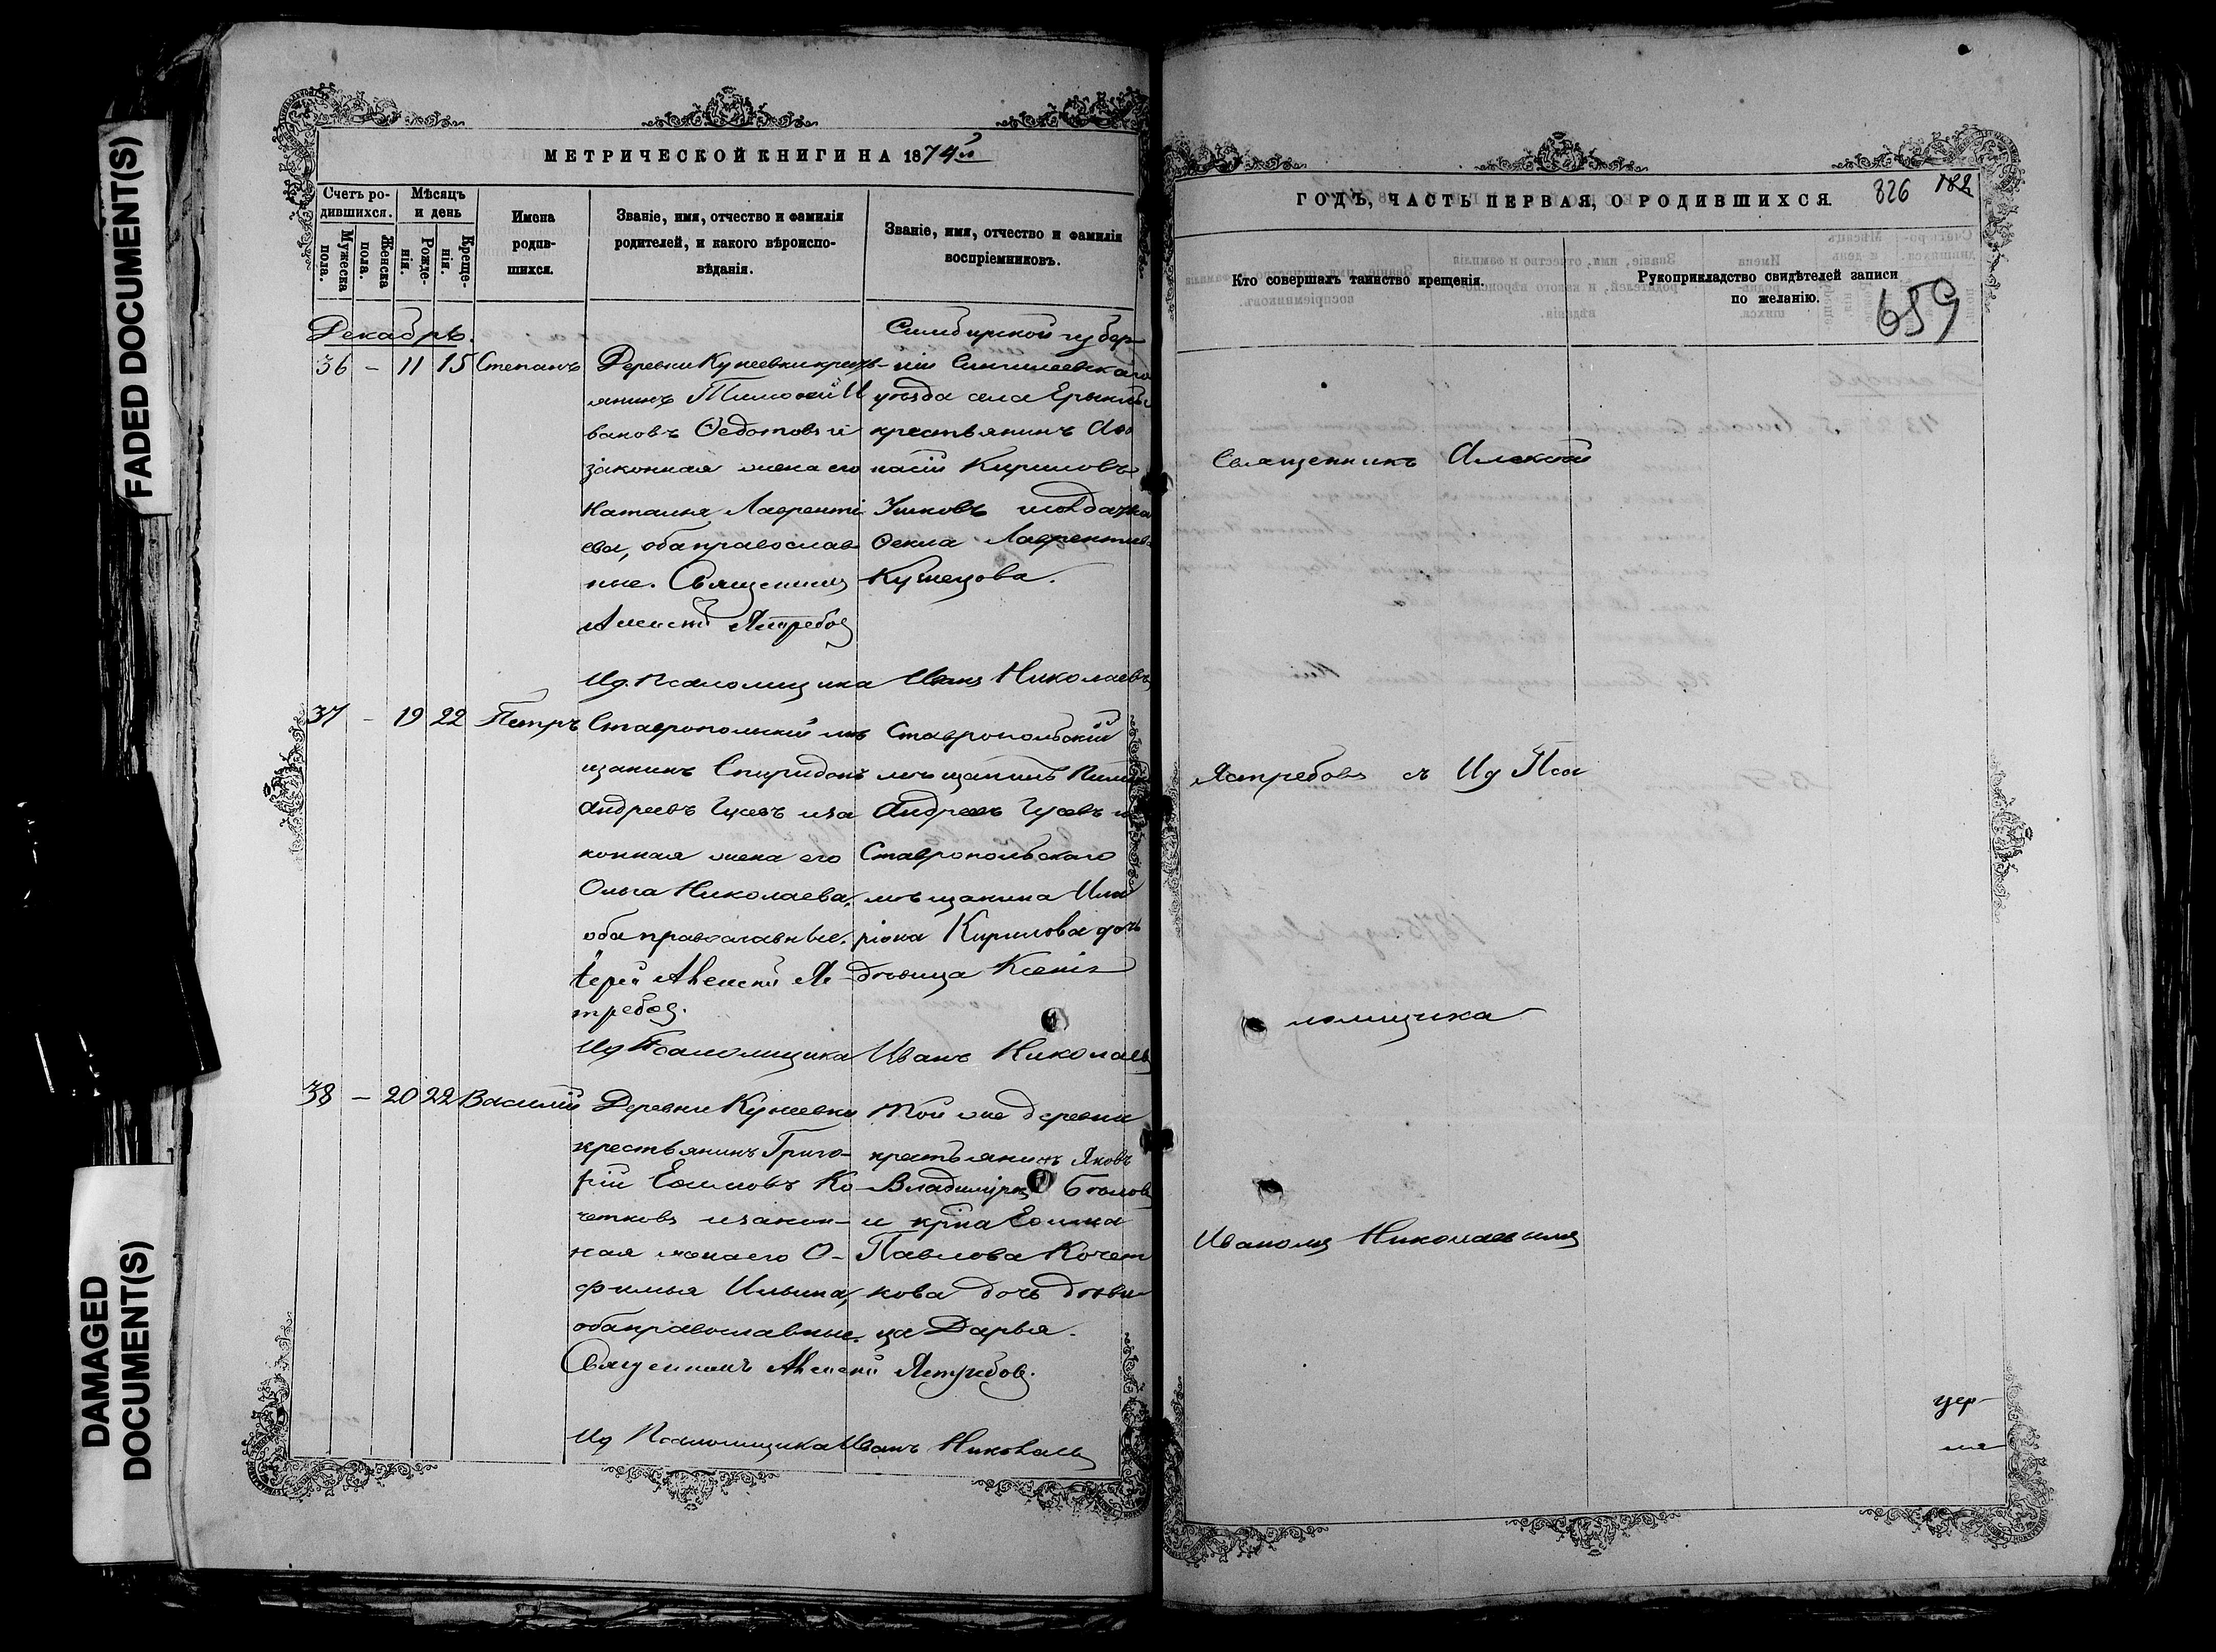 FADED DOCUMENT(S)
DAMAGED
DOCUMENT(S)
МЕТРИЧЕСКОЙ КНИГИ НА 1874й
Счетъ ро-
дившихся.
Мужеска
пола.
Женска
пола.
Мѣсяцъ
и день
Рожде-
нія.
Креще-
нія.
Имена
родив-
шихся.
Званіе, имя, отчество и фамилія
родителей, и какого вѣроиспо-
вѣданія.
Званіе, имя, отчество и фамилія
воспріемниковъ.
Декабрь.
36 – 11 15 Степанъ
Деревни Кунеевки кресть-
янинъ Тимоѳей И
вановъ Ѳедотовъ и
законная жена его
Наталия Лавренті
ева, оба православ
ные. Священникъ
Алексій Ястребовъ
Симбирской губер-
ніи Сингилеевскаго
уѣзда села Ерыклы
крестьянинъ Аѳо
насій Кириловъ
Ушковъ и солдатка
Ѳекла Лаврентиева
Кузнецова.
Ид. Псаломщика Иванъ Николаевъ
37 – 19 22 Петръ
Ставропольскій мѣ
щанинъ Спиридонъ
Андреевъ Гусевъ и за
конная жена его
Ольга Николаева,
оба православные.
Іерей Алексій Яс
требовъ.
Ставропольскій
мѣщанинъ
Андреевъ Гусевъ и
Ставропольскаго
мѣщанина Ила
ріона Кирилова дочь
дѣвица Ксенія
Ид Псаломщика Иванъ Николаевъ
38 – 20 22 Василій
Деревни Кунеевки
крестьянинъ Григо-
рій Еѳимовъ Ко-
четковъ и закон-
ная жена его О-
фимья Ильина,
оба православные.
Той же деревни
крестьянинъ Яковъ
Владиміровъ Бѣловъ
и кр҃на Еѳима
Павлова Кочет
кова дочь дѣви-
ца Дарья.
Священникъ Алексій Ястребовъ.
Ид Псаломщика Иванъ Николаевъ
ГОДЪ, ЧАСТЬ ПЕРВАЯ, О РОДИВШИХСЯ.
826 182
659
Кто совершалъ таинство крещенія.
Рукоприкладство свидѣтелей записи
по желанію.
Священникъ Алексѣй
Ястребовъ съ Ид Пса
ломщика
Иваномъ Николаевымъ
цер-